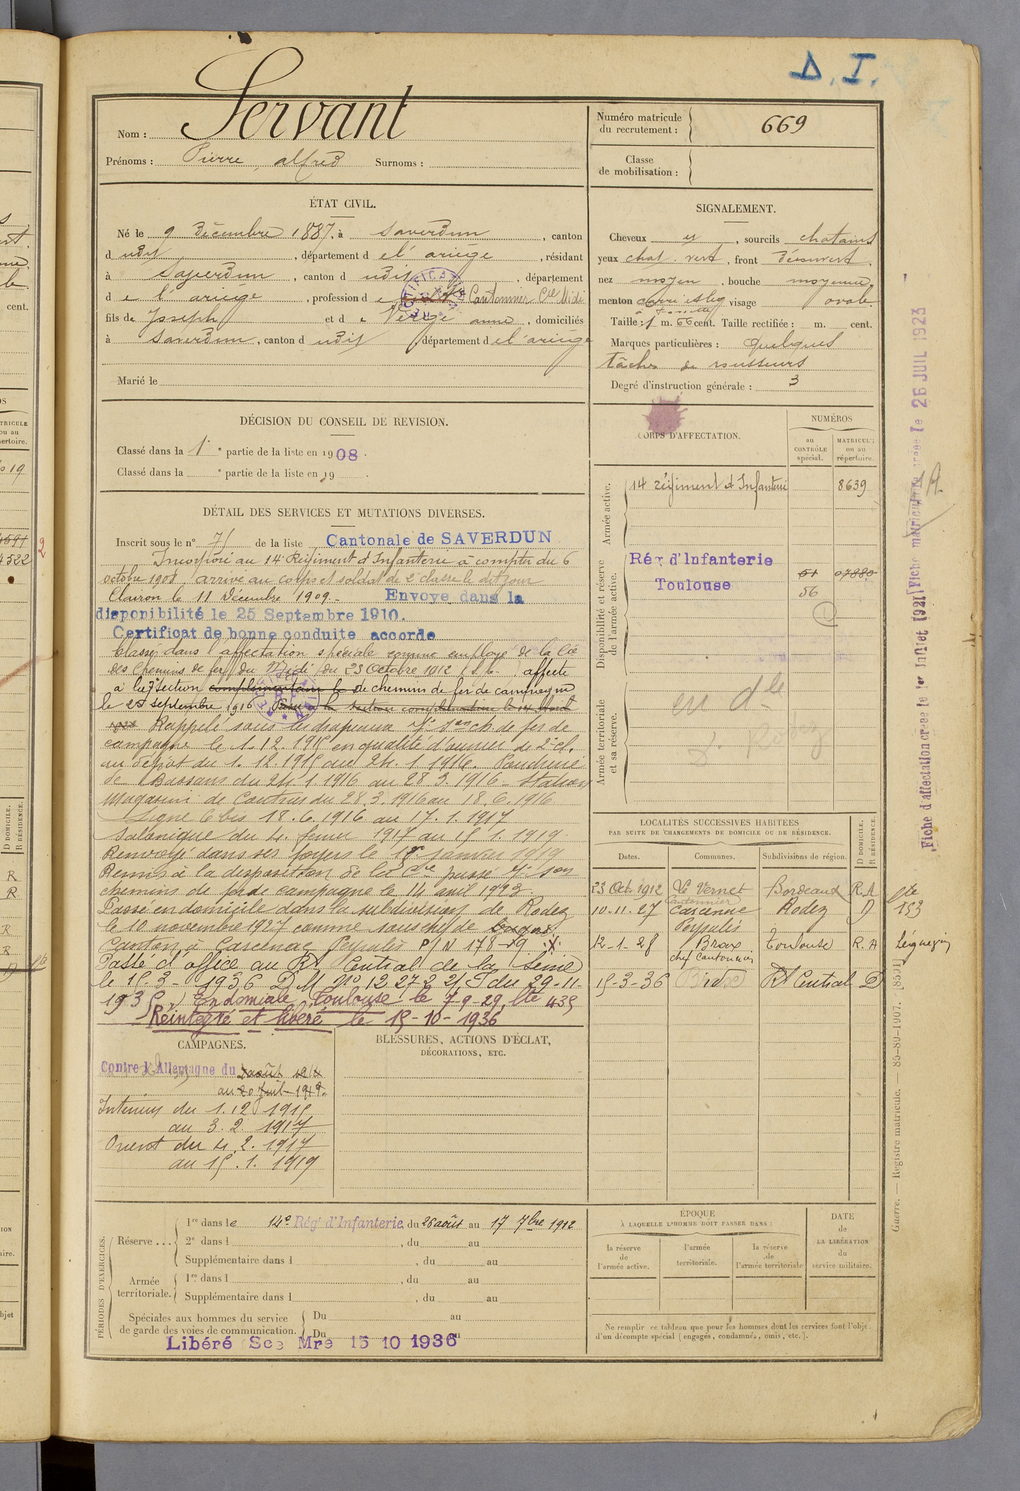 D. I.
Nom : Servant
Prénoms : Pierre, alfred Surnoms :
Numéro matricule du recrutement : 669
Classe de mobilisation :
ÉTAT CIVIL.
Né le 9 décembre 1887, à Saverdun, canton
d udit, département d e l'ariège, résidant
à Saverdun, canton d udit, département
d e l'ariège, profession d e Cantonnier Cie Midi
fils de Joseph et d e Verge anne, domiciliés
à Saverdun, canton d udit département d e l'ariège
Marié le
SIGNALEMENT.
Cheveux , sourcils chatains
yeux chat. vert, front découvert
nez moyen, bouche moyenne
menton visage ovale
Taille : 1 m. 66 cent. Taille rectifiée : m. cent.
Marques particulières : quelques
tâches de rousseurs
Degré d'instruction générale : 3
DÉCISION DU CONSEIL DE REVISION.
Classé dans la 1e partie de la liste en 1908.
Classé dans la e partie de la liste en 19
DÉTAIL DES SERVICES ET MUTATIONS DIVERSES.
Inscrit sous le n° 75 de la liste Cantonale de SAVERDUN
Incorporé au 14e Régiment d'Infanterie à compter du 6
octobre 1908, arrivé au corps et soldat de 2e classe le dit jour
Clairon le 11 décembre 1909. Envoyé dans la
disponibilité le 25 Septembre 1910.
Certificat de bonne conduite accordé
Classé dans l'affectation spéciale comme employé de la Cie
des Chemins de fer du Midi du 23 Octobre 1912 affecté
à la 7e section complémentaire de chemins de fer de campagne
le 25 septembre 1916
Rappelé sous les drapeaux ch. de fer de
campagne le 1.12.1915 en qualité d'ouvrier de 2e cl.
au dépôt du 1.12.1915 au 24.1.1916. Poudrerie
de Bassens du 24.1.1916 au 28.3.1916. Station
Magasin de Contres du 28.3.1916 au 18.6.1916
Ligne 6 bis 18.6.1916 au 17.1.1917
Salonique du 4 fevrier 1917 au 15.1.1919.
Renvoyé dans ses foyers le 15 janvier 1919
Remis à la disposition de la Cie passé 7e son
chemins de fer de campagne le 14 avril 1923.
Passé en domicile dans la subdivision de Rodez
le 10 novembre 1927 comme sous chef de
canton à Carcenac Peyralès P/N 178-29
Passé d'office au Rt Central de la Seine
le 15-3-1936 D.M. N° 12272 du 29-11-
1935. En domicile Toulouse le 7-9-29, lte 435
Réintégré et libéré le 15-10-1936
CORPS D'AFFECTATION.
NUMÉROS
au CONTRÔLE spécial.
MATRICULE ou au répertoire.
Armée active.
14 Régiment d'Infanterie 8639
Disponibilité et réserve de l'armée active.
Rég d'Infanterie
Toulouse
51 07880
56
Armée territoriale et sa réserve.
en dle
s. Rodez
LOCALITÉS SUCCESSIVES HABITÉES
PAR SUITE DE CHANGEMENTS DE DOMICILE OU DE RÉSIDENCE.
Dates. Communes. Subdivisions de région. D DOMICILE. R RÉSIDENCE.
23 Oct. 1912 Le Vernet Bordeaux R.A
10-11-27 Cantonnier Carcenac Peyralès Rodez D
12-1-28 Brax chef Cantonnier Toulouse R.A
15-3-36 Rt Central D
lte 153
Léguevin
CAMPAGNES.
Contre l'Allemagne du 2 août 1914
au 20 Juil 1919.
Intérieur du 1.12.1915
au 3.2.1917
Orient du 4.2.1917
au 15.1.1919
BLESSURES, ACTIONS D'ÉCLAT,
DÉCORATIONS, ETC.
PÉRIODES D'EXERCICES.
Réserve ...
1re dans le 14e Rég' d'Infanterie du 26 août au 17 7bre 1912
2e dans l , du au
Supplémentaire dans l , du au
Armée territoriale.
1re dans l , du au
Supplémentaire dans l , du au
Spéciales aux hommes du service
de garde des voies de communication.
Du au
Du au
Libéré Sce Mre 15 10 1936
ÉPOQUE
À LAQUELLE L'HOMME DOIT PASSER DANS :
la réserve de l'armée active.
l'armée territoriale.
la réserve de l'armée territoriale
DATE de LA LIBÉRATION du service militaire.
Ne remplir ce tableau que pour les hommes dont les services font l'objet
d'un décompte spécial [engagés, condamnés, omis, etc.].
Guerre. — Registre matricule. — 85-80-1907. [8531]
Fiche d'affectation créée le 1er Juillet 1921
Fiche matricule créée le 26 JUIL 1923